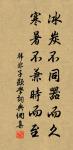 冰炭不同器而久
寒暑不兼時而至
韩非子顯學詞典網集